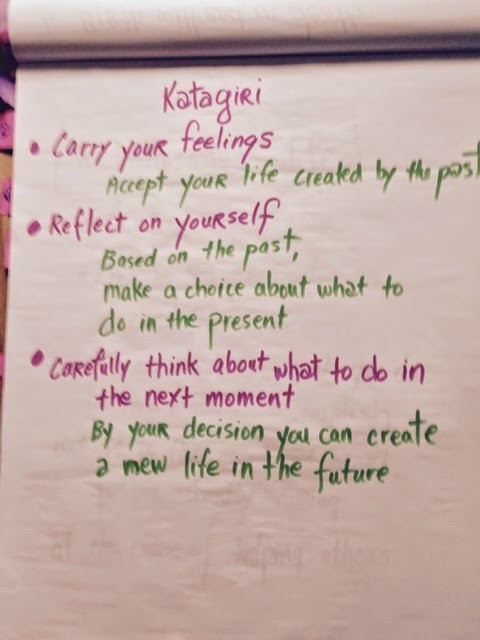 Katagiri
• Carry your feelings
Accept your life created by the past
• Reflect on yourself
Based on the past,
make a choice about what to
do in the present
• Carefully think about what to do in
the next moment
By your decision you can create
a mew life in the future
helping others